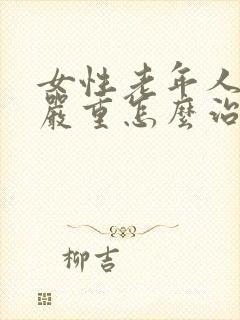 女性老年人
嚴重怎麼治
柳吉